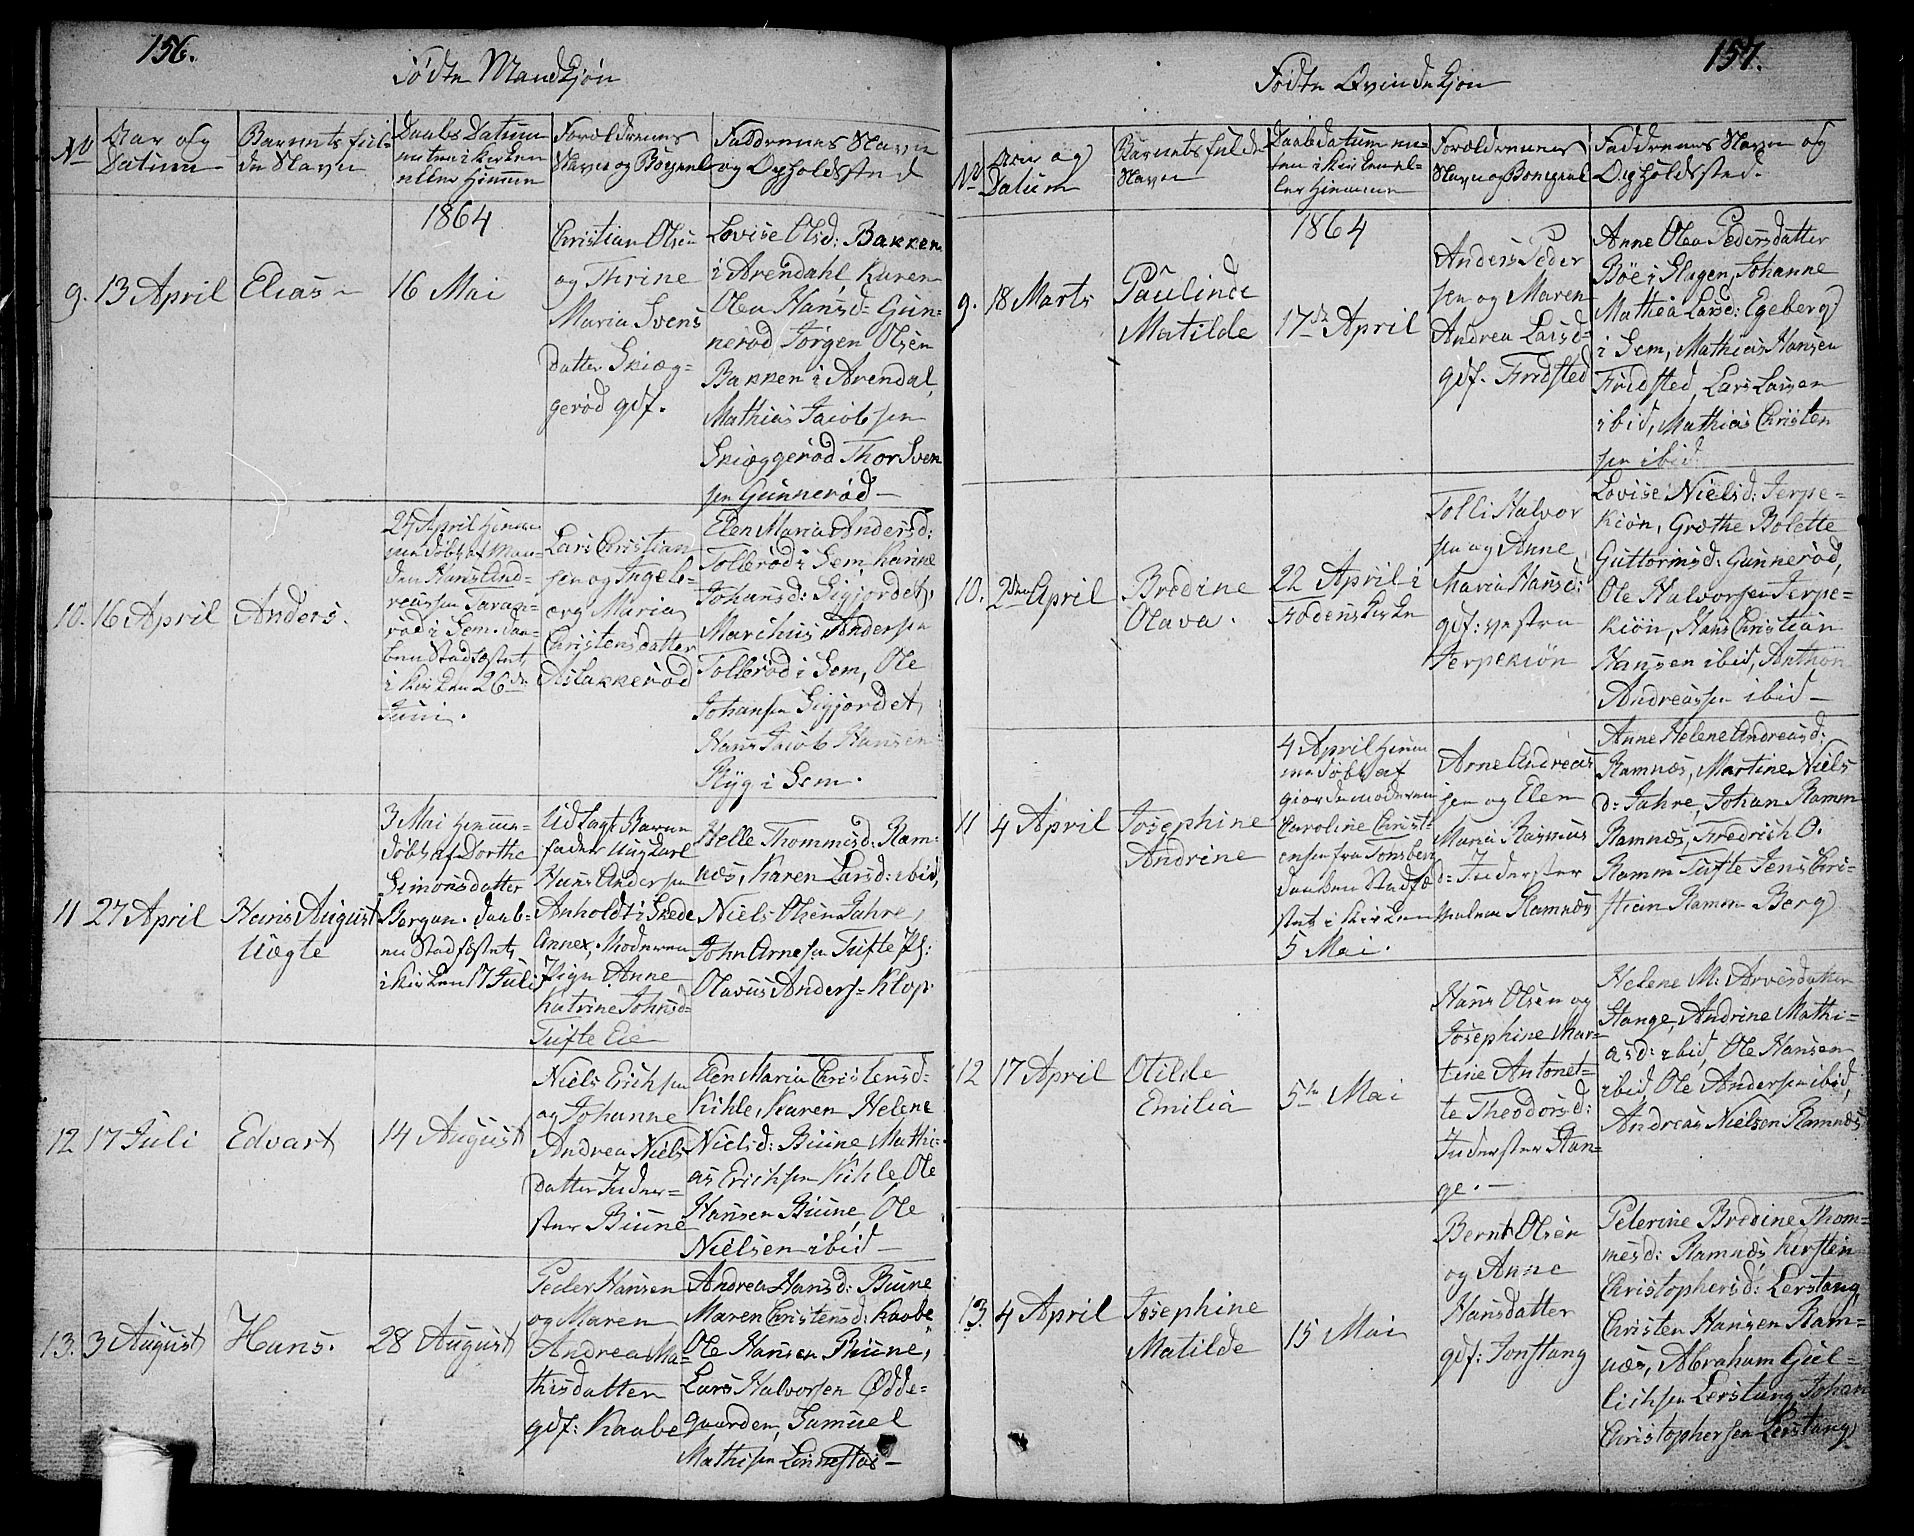 156.
Fødte Mandkjøn
No
Aar og
Datum
Barnets ful-
de Navn
Daabs Datum
enten i Kirken
eller Hiemme
Forældrenes
Navn og Bopæl
Faddrenes Navn
og Opholdssted
1864
9.
13 April
Elias
16 Mai
Christian Olsen
og Thrine
Maria Svens
datter Skiæg-
gerød gdf.
Lovise Olsd: Bakken
i Arendahl, Karen
Olea Hansd= Gun-
nerød Jørgen Olsen
Bakken i Arendal,
Mathias Jacobsen
Skiæggerød Thor Sven
sen Gunnerød
10.
16 April
Anders.
24 April hjem
me døbt af Man-
den Hans And-
reassen Taran-
rød i Sem. Daa-
ben Stadfæstet
i Kirken 26de
Juni.
Lars Christian
sen og Ingeb-
org Maria
Christensdatter
Aslakkerød
Elen Maria Andersd:
Tollerød i Sem Karine
Johansd: Sigjordet,
Marthus Andersen
Tollerød i Sem, Ole
Johansen Sigjordet,
Hans Jacob Hansen
Ryg i Sem.
11
27 April
Hans August
Uægte
3 Mai hjemme-
døbt af Dorthe
Simonsdatter
Bergan. Daab-
en Stadfæstet
i Kirken 17 Juli
Udlagt Barne
fader Ung Karl
Hans Andersen
Anholdt i Skede
Annex, Moderen
Pige Anne
Katrine Johnsd=
Tufte Eie
Helle Thommesd: Ram-
næs, Karen Larsd: ibid,
Niels Olsen Jahre,
John Arnesen Tufte Pl:
Olavus Anders= Klop
12
17 Juli
Edvart
14 August
Niels Erichsen
og Johanne
Andrea Niels
datter Inder-
ster Biune
Elen Maria Christensd=
Kihle, Karen Helene
Nielsd: Biune Mathi-
as Erichsen Kihle Ole
Hansen Biune, Ole
Nielsen ibid
13.
3 August
Hans.
28 August
Peder Hansen
og Maren
Andrea Ma-
thisdatter
gdf: Kaabe
Andrea Hansd: Biune
Maren Christensd: Kaabe
Ole Hansen Biune,
Lars Halvorsen Ødde-
gaarden, Samuel
Mathisen Linnestad
157.
Fødte Qvindekjøn
No
Aar og
Datum
Barnets fulde
Navn
Daabdatum en-
ten i Kirken el-
ler Hiemme
Forældrenes
Navn og Bopæl
Faddrenes Navn og
Opholdssted.
1864
9.
18 Marts
Paulinde
Matilde
17de April
Anders Peder
sen og Maren
Andrea Larsd=
gdf. Fridsted
Anne Olea Pedersdatter
Bøe i Slagen, Johanne
Mathea Larsd: Egeberg
i Sem, Mathias Hansen
Fridsted, Lars Larsen
ibid, Mathias Christen
sen ibid
10.
2den April
Bredine
Olava.
22 April i
Fodenskirke
Tolli Halvor
sen og Anne
Maria Hansd:
gdf: vestra
Jerpekiøn
Lovise Nielsd: Jerpe-
kiøn, Græthe Bolette
Guttormsd: Gunnerød,
Ole Halvorsen Jerpe-
kiøn, Hans Christian
Hansen ibid, Anthon
Andreassen ibid
11
4 April
Josephine
Andrine
4 April hjem
me døbt af
Giordemoderen
Caroline Christ-
ensen fra Tønsberg
daaben Stadfæ
stet i Kirken
5 Mai.
Arne Andreas
sen og Elen
Maria Rasmus
d: Inderster
Ramnæs
Anne Helene Andreasd:
Ramnæs, Martine Niels
d: Jahre, Johan Ramm
Ramnæs, Fredrich O.
Ramm Tufte Jens Chri-
stian Ramm Berg
12
17 April
Otilde
Emilia
5te Mai
Hans Olsen og
Josephine Mar-
tine Antonet-
te Theodorsd:
Inderster Stan-
ge.
Helene M: Arvesdatter
Stange, Andrine Mathi-
asd: ibid, Ole Hansen
ibid, Ole Andersen ibid,
Andreas Nielsen Ramnæs
13.
4 April
Josephine
Matilde
15 Mai
Bernt Olsen
og Anne
Hansdatter
gdf: Jonstang
Pelerine Bredine Thom-
mesd: Ramnæs, Kirsten
Christophersd: Lerstang,
Christen Hansen Ram-
næs, Abraham Gul-
lichsen Lerstang, Johan
Christophersen Lerstang